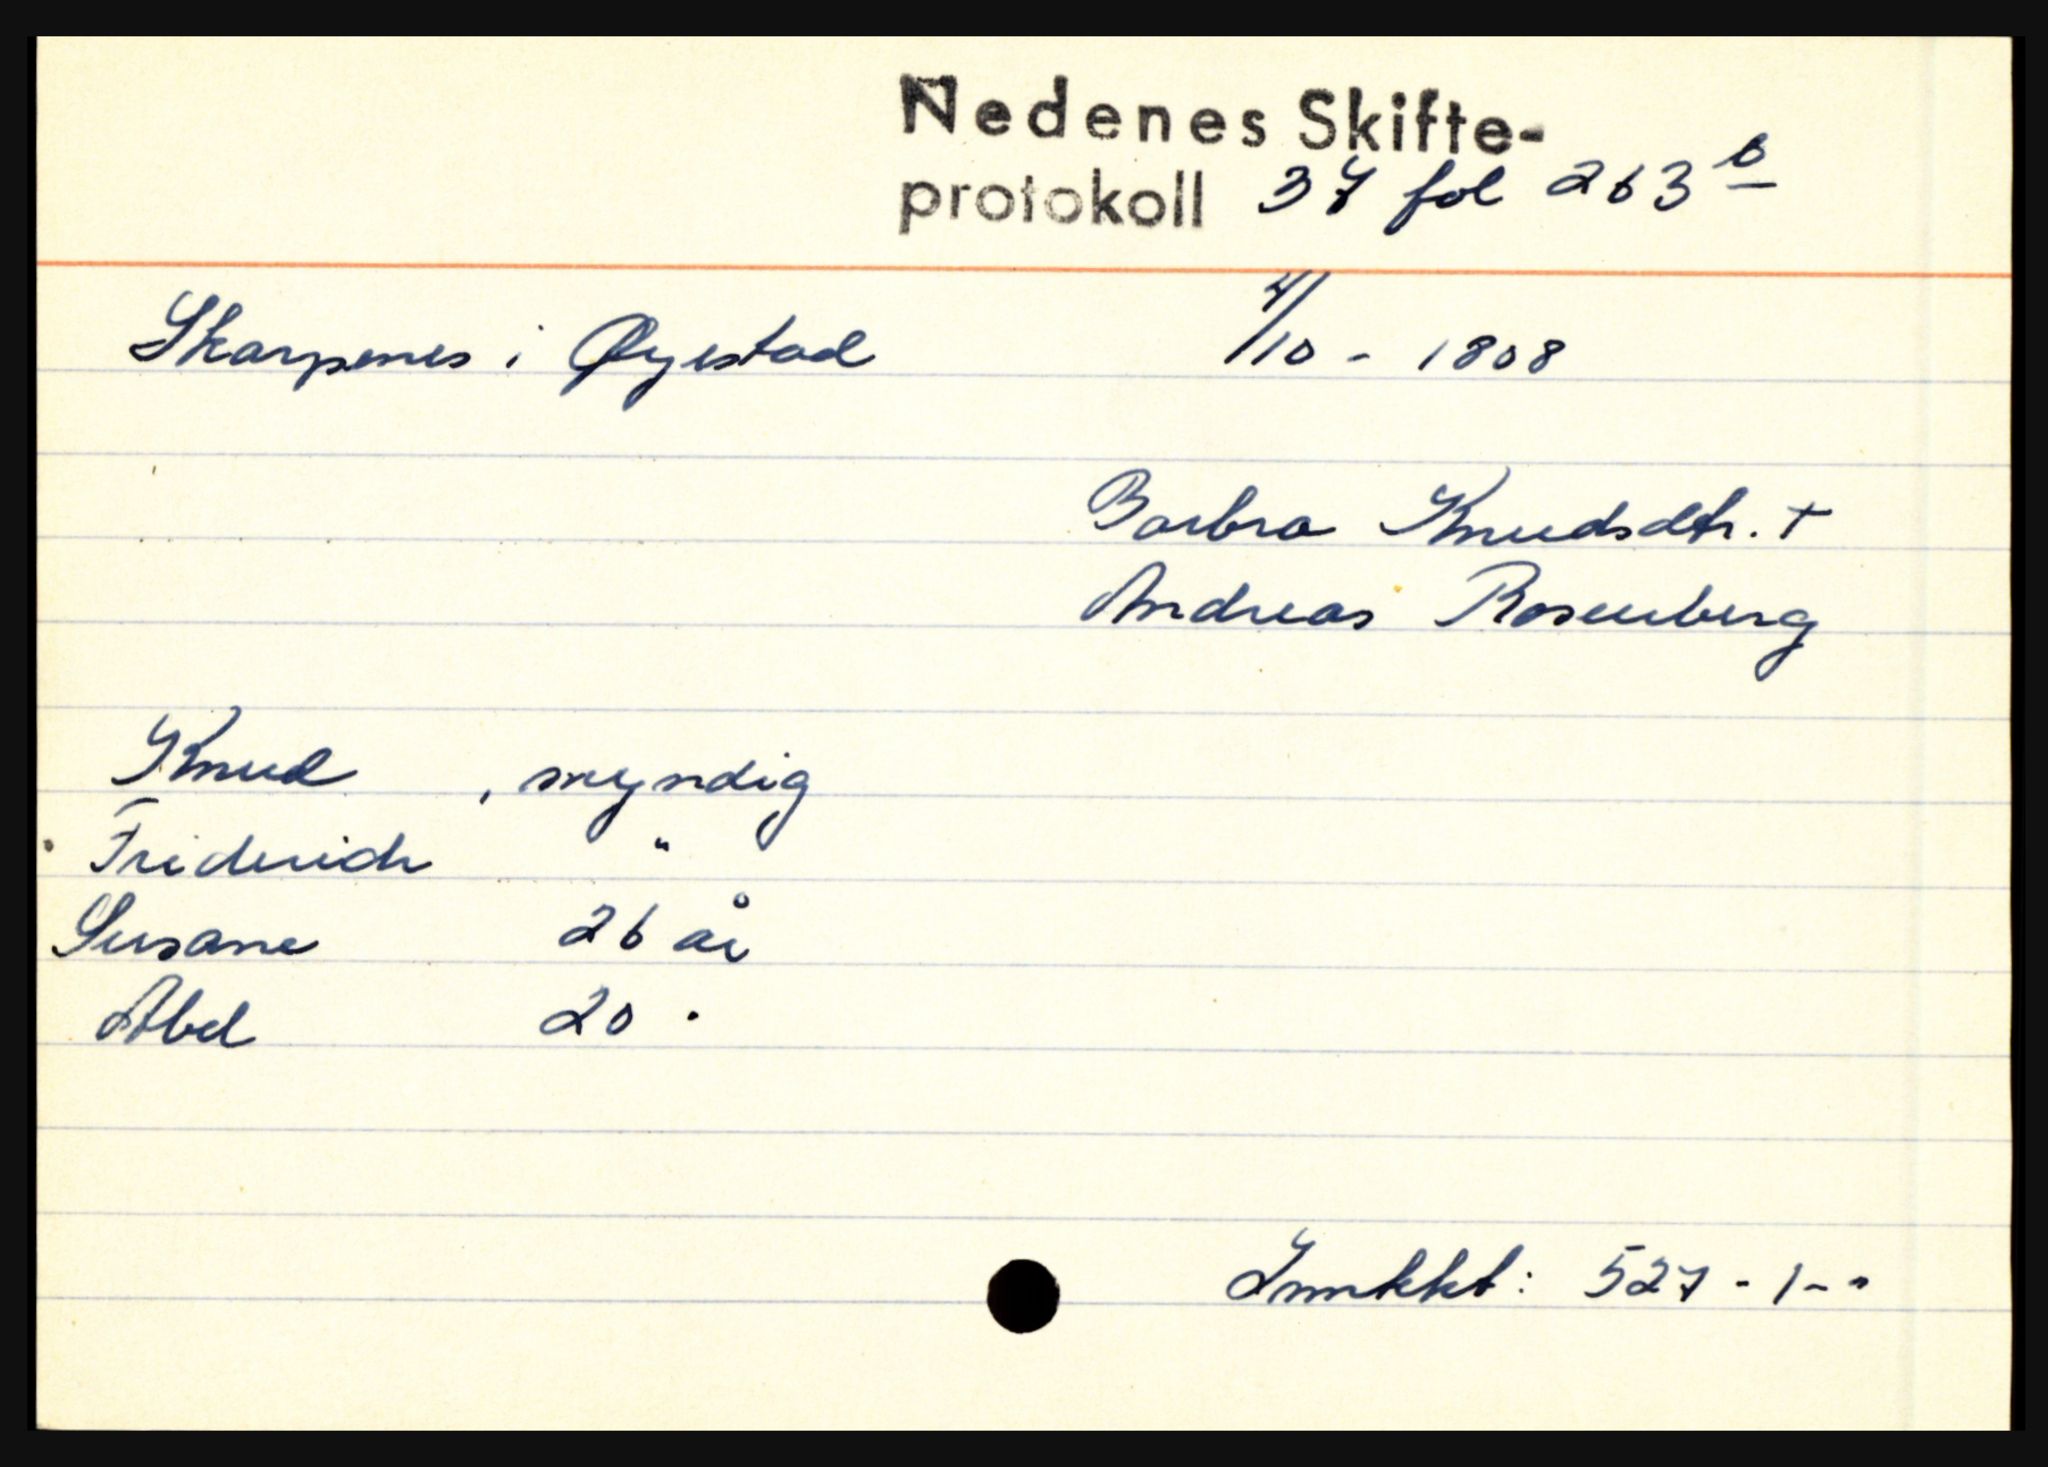 Nedenes Skifte-
protokoll 37 fol 263 b
Skarpenes i Øyestad 4/10 - 1808
Barbra Knudsdtr. +
Andreas Rosenberg
Knud , myndig
Friderich "
Susane 26 år
Abel 20 .
: 527 - 1 - "